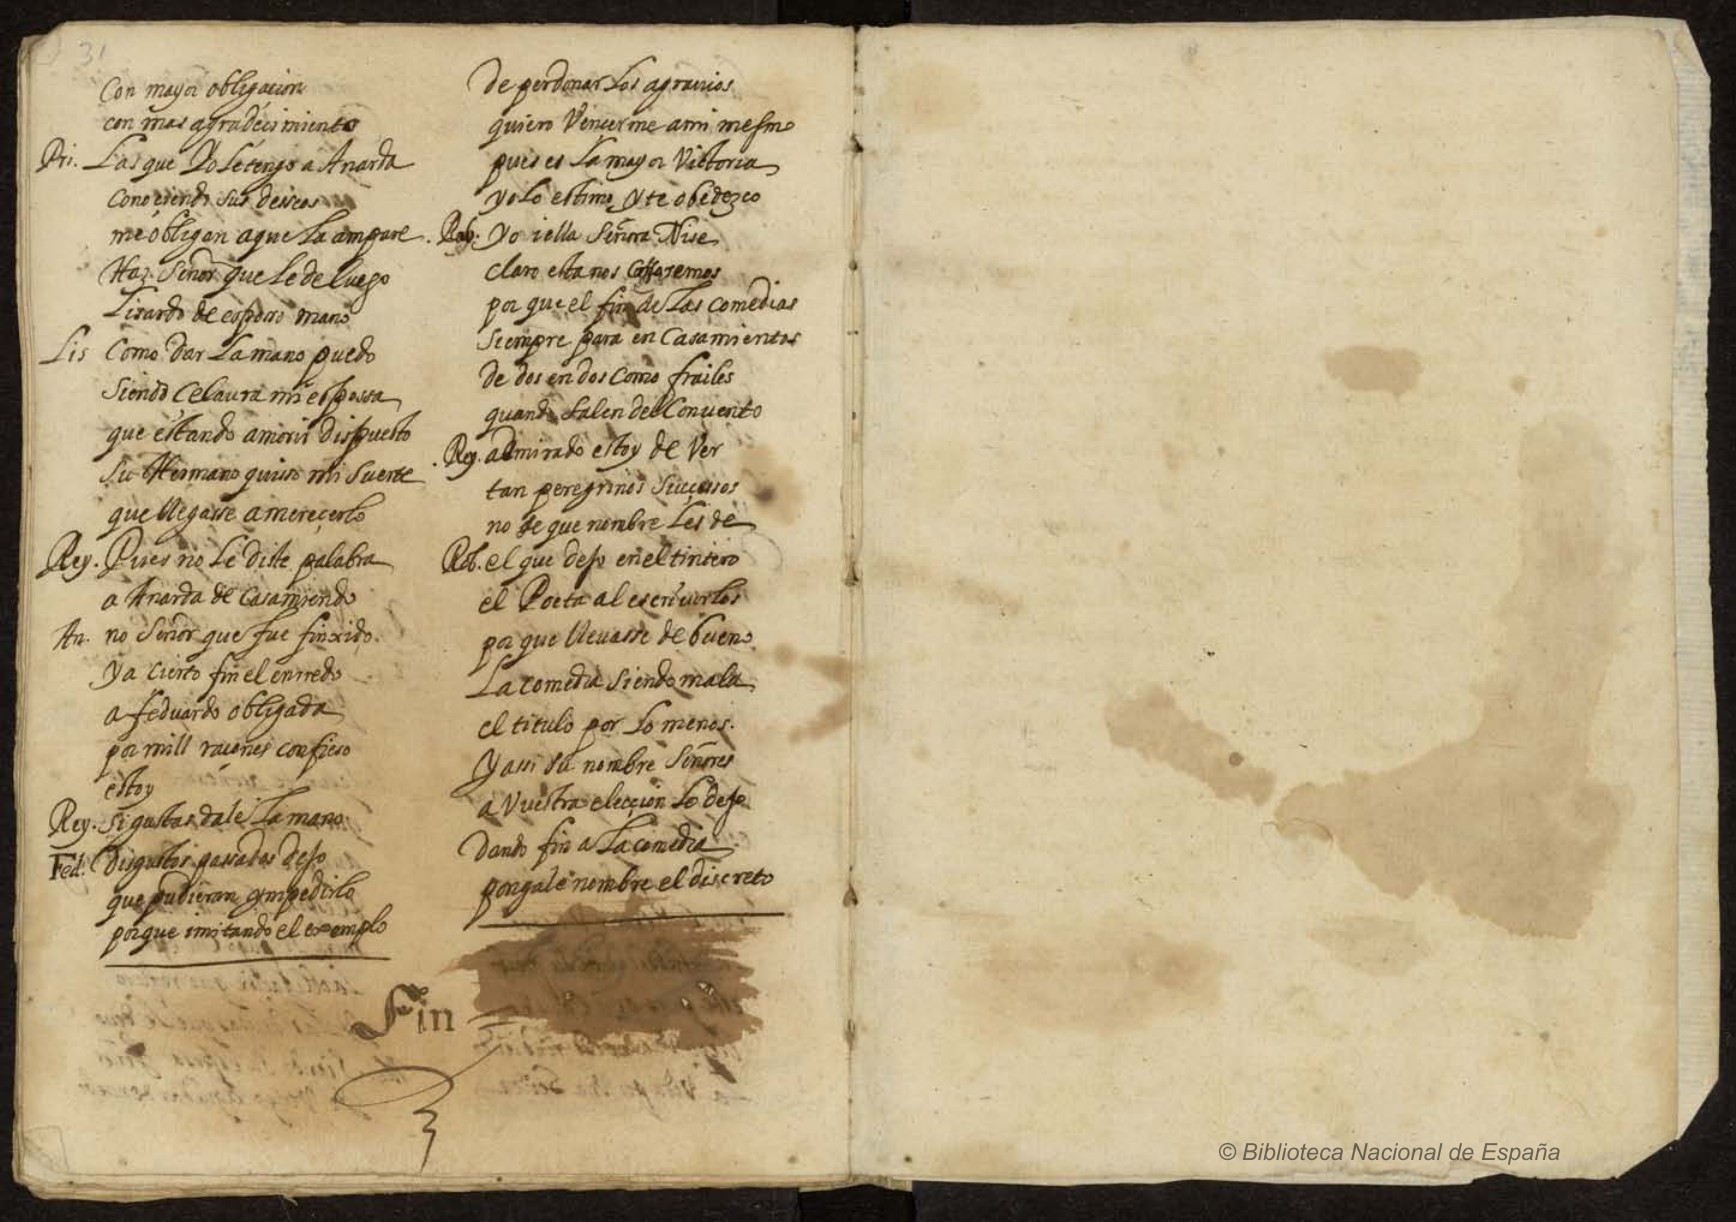 31
Con mayor obligacion
con mas agradecimiento
Pri. Las que Yo le tengo a Anarda
conociendo sus deseos
me obligan a que la ampare
Haz Señor que le de luego
Lisardo de esposo mano
Lis Como dar la mano puedo
siendo Celaura mi espossa
que estando a morir dispuesto
su Hermano quiso mi suerte
que llegasse a mereçerlo
Rey. Pues no le diste palabra
a Anarda de casamiendo
An. no Señor que fue finxido
y a cierto fin el enrredo
a feduardo obligada
por mill raçones confieso
estoy
Rey. si gustas dale la mano
Fed. Disgustos passados dejo
que pudieran ympedirlo
porque imitando el exemplo
de perdonar los agrauios
quiero Vencerme a mi mesmo
pues es la mayor Victoria
yo lo estimo y te obedezco
Rob. Yo i ella Señora Nise
claro esta nos casaremos
por que el fin de las comedias
siempre para en casamientos
de dos en dos como frailes
quando salen del Conuento
Rey. admirado estoy de Ver
tan peregrinos Sucçessos
no se que nombre les de
Rob. el que dejo en el tintero
el Poeta al escriuirlos
por que lleuasse de bueno
La comedia siendo mala
el titulo por lo menos.
Y assi su nombre Señores
a Vuestra elecçion lo dejo
Dando fin a la comedia
pongale nombre el discreto
Fin
© Biblioteca Nacional de España